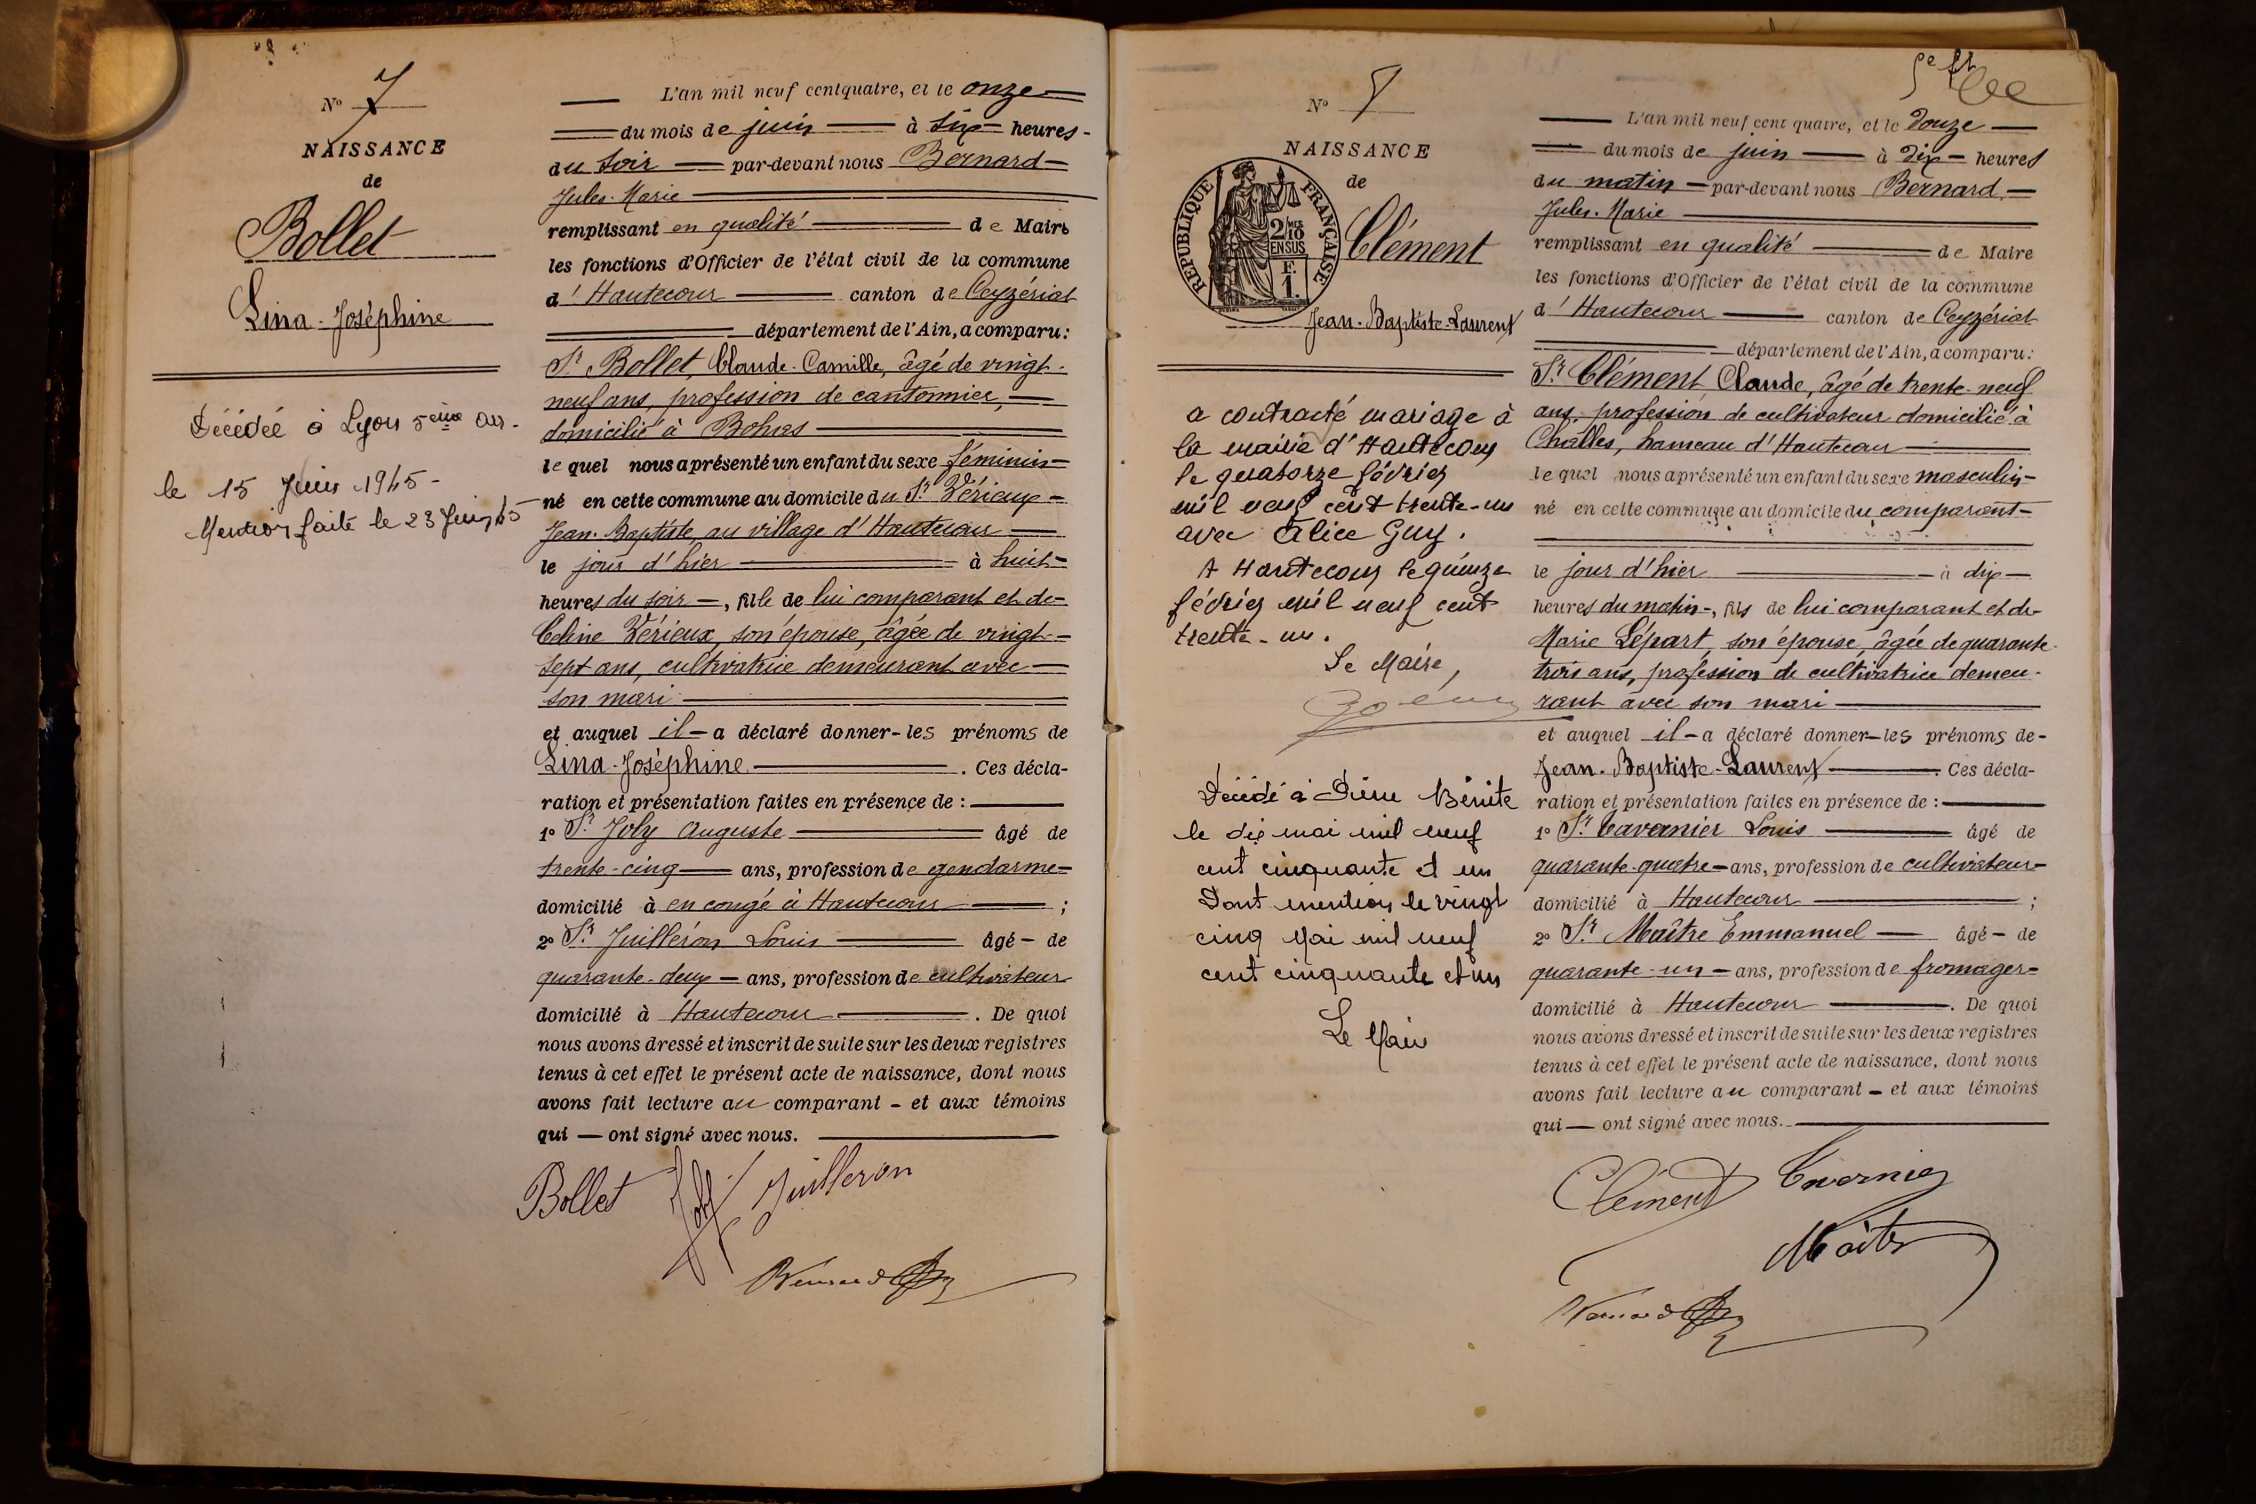 N° 7
NAISSANCE
de
Bollet
Lina-Joséphine
Décédée à Lyon 5eme arr.
le 15 Juin 1945-
Mention faite le 23 Juin 45
L'an mil neuf cent quatre, et le onze
du mois de juin à six heures
du soir par-devant nous Bernard
Jules-Marie
remplissant en qualité de Maire
les fonctions d'Officier de l'état civil de la commune
d'Hautecour canton de Ceyzériat
département de l'Ain, a comparu:
Sr Bollet, Claude-Camille, âgé de vingt-
neuf ans, profession de cantonnier,
domicilié à Bohas
lequel nous a présenté un enfant du sexe féminin
né en cette commune au domicile du Sr Vérieux
Jean-Baptiste, au village d'Hautecour
le jour d'hier à huit
heures du soir, fille de lui comparant et de
Céline Vérieux, son épouse, âgée de vingt-
sept ans, cultivatrice demeurant avec
son mari
et auquel il a déclaré donner les prénoms de
Lina-Joséphine. Ces décla-
ration et présentation faites en présence de :
1° Sr Joly Auguste âgé de
trente-cinq ans, profession de gendarme
domicilié à en congé à Hautecour ;
2° Sr Juilleron Louis âgé de
quarante-deux ans, profession de cultivateur
domicilié à Hautecour. De quoi
nous avons dressé et inscrit de suite sur les deux registres
tenus à cet effet le présent acte de naissance, dont nous
avons fait lecture au comparant et aux témoins
qui ont signé avec nous.
Bollet Joly Juilleron
Bernard
N° 8
NAISSANCE
de
REPUBLIQUE FRANÇAISE
2/10 MES
EN SUS
F.
1.
Clément
Jean-Baptiste-Laurent
a contracté mariage à
la mairie d'Hautecour
le quatorze février
mil neuf cent trente-un
avec Alice Guy.
A Hautecour le quinze
février mil neuf cent
trente-un.
Le Maire,
Décédé à Pierre Bénite
le dix mai mil neuf
cent cinquante et un
Dont mention le vingt
cinq Mai mil neuf
cent cinquante et un
Le Maire
L'an mil neuf cent quatre, et le douze
du mois de juin à dix heures
du matin par-devant nous Bernard
Jules-Marie
remplissant en qualité de Maire
les fonctions d'Officier de l'état civil de la commune
d'Hautecour canton de Ceyzériat
département de l'Ain, a comparu:
Sr Clément, Claude, âgé de trente-neuf
ans, profession de cultivateur domicilié à
Challes, hameau d'Hautecour
lequel nous a présenté un enfant du sexe masculin
né en cette commune au domicile du comparant
le jour d'hier à dix
heures du matin, fils de lui comparant et de
Marie Lépart, son épouse, âgée de quarante-
trois ans, profession de cultivatrice demeu-
rant avec son mari
et auquel il a déclaré donner les prénoms de
Jean-Baptiste-Laurent. Ces décla-
ration et présentation faites en présence de :
1° Sr Tavernier Louis âgé de
quarante-quatre ans, profession de cultivateur
domicilié à Hautecour ;
2° Sr Maître Emmanuel âgé de
quarante-un ans, profession de fromager
domicilié à Hautecour. De quoi
nous avons dressé et inscrit de suite sur les deux registres
tenus à cet effet le présent acte de naissance, dont nous
avons fait lecture au comparant et aux témoins
qui ont signé avec nous.
Clément Tavernier
Maître
Bernard